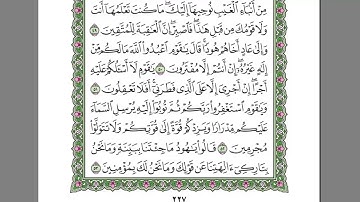 مِنْ أَنۢبَآءِ ٱلْغَيْبِ نُوحِيهَآ إِلَيْكَ ۖ مَا كُنتَ تَعْلَمُهَآ أَنتَ
وَلَا قَوْمُكَ مِن قَبْلِ هَٰذَا ۖ فَٱصْبِرْ ۖ إِنَّ ٱلْعَٰقِبَةَ لِلْمُتَّقِينَ ٤٩
وَإِلَىٰ عَادٍ أَخَاهُمْ هُودًا ۚ قَالَ يَٰقَوْمِ ٱعْبُدُوا۟ ٱللَّهَ مَا لَكُم مِّنْ
إِلَٰهٍ غَيْرُهُۥٓ ۖ إِنْ أَنتُمْ إِلَّا مُفْتَرُونَ ٥٠ يَٰقَوْمِ لَآ أَسْـَٔلُكُمْ عَلَيْهِ
أَجْرًا ۖ إِنْ أَجْرِىَ إِلَّا عَلَى ٱلَّذِى فَطَرَنِىٓ ۚ أَفَلَا تَعْقِلُونَ ٥١
وَيَٰقَوْمِ ٱسْتَغْفِرُوا۟ رَبَّكُمْ ثُمَّ تُوبُوٓا۟ إِلَيْهِ يُرْسِلِ ٱلسَّمَآءَ
عَلَيْكُم مِّدْرَارًا وَيَزِدْكُمْ قُوَّةً إِلَىٰ قُوَّتِكُمْ وَلَا تَتَوَلَّوْا۟
مُجْرِمِينَ ٥٢ قَالُوا۟ يَٰهُودُ مَا جِئْتَنَا بِبَيِّنَةٍ وَمَا نَحْنُ
بِتَارِكِىٓ ءَالِهَتِنَا عَن قَوْلِكَ وَمَا نَحْنُ لَكَ بِمُؤْمِنِينَ ٥٣
٢٢٧